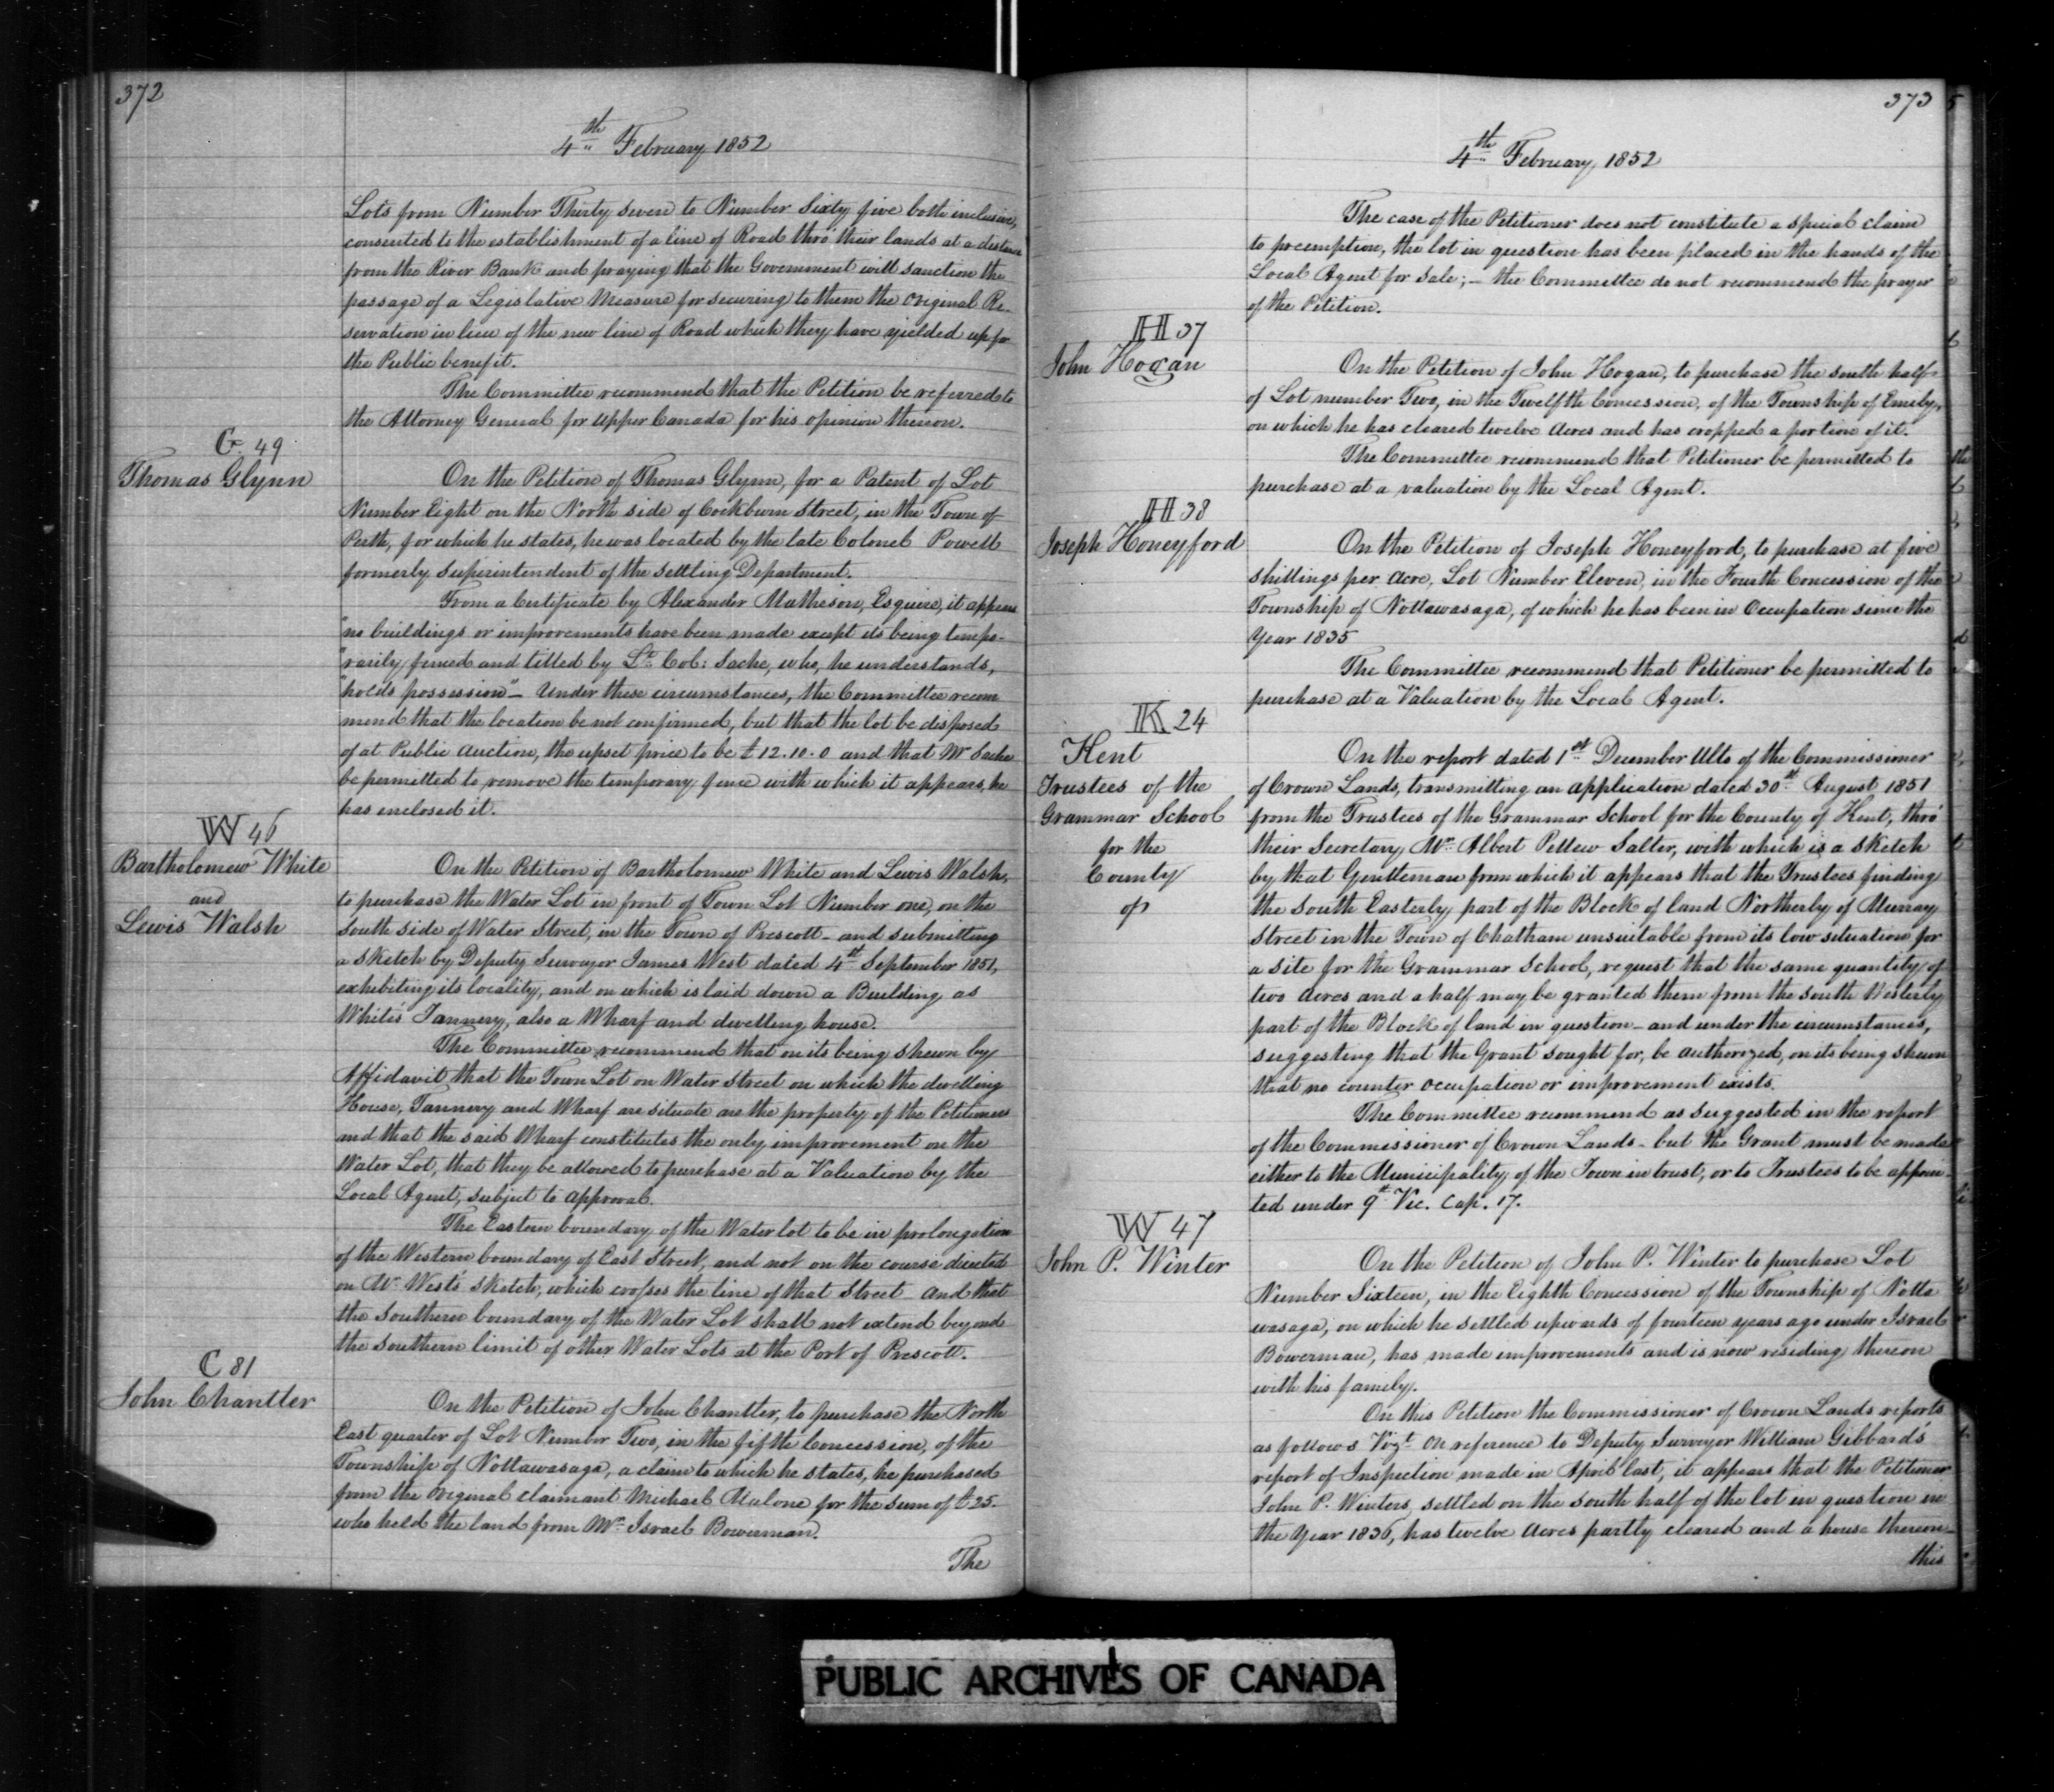 372
4th February 1852
Lots from Number Thirty seven to Number Sixty five both inclusive,
consented to the establishment of a line of Road thro' their lands at a distance
from the River Bank and praying that the Government will sanction the
passage of a Legislative Measure for securing to them the Original Re-
servation in lieu of the new line of Road which they have yielded up for
the Public benefit.
The Committee recommend that the Petition be referred to
the Attorney General for Upper Canada for his opinion thereon.
G. 49
Thomas Glynn
On the Petition of Thomas Glynn, for a Patent of Lot
Number Eight on the North side of Cockburn Street, in the Town of
Perth, for which he states, he was located by the late Colonel Powell
formerly Superintendent of the Settling Department.
From a Certificate by Alexander Matheson, Esquire, it appears
"no buildings or improvements have been made except its being tempo-
"rarily fenced and tilled by Lt. Col: Sache, who, he understands,
"holds possession" – Under these circumstances, the Committee recom
mend that the location be not confirmed, but that the lot be disposed
of at Public Auction, the upset price to be £12.10.0 and that Mr Sache
be permitted to remove the temporary fence with which it appears, he
has enclosed it.
W 46
Bartholomew White
and
Lewis Walsh
On the Petition of Bartholomew White and Lewis Walsh,
to purchase the Water Lot in front of Town Lot Number one, on the
South side of Water Street, in the Town of Prescott – and submitting
a Sketch by Deputy Surveyor James West dated 4th September 1851,
exhibiting its locality, and on which is laid down a Building, as
White's Tannery, also a Wharf and dwelling house.
The Committee recommend that on its being shewn by
Affidavit that the Town Lot on Water Street on which the dwelling
House, Tannery and Wharf are situate are the property of the Petitioners
and that the said Wharf constitutes the only improvement on the
Water Lot, that they be allowed to purchase at a Valuation by the
Local Agent, subject to approval.
The Eastern boundary of the Water lot to be in prolongation
of the Western boundary of East Street, and not on the course directed
on Mr West's Sketch, which crosses the line of that Street and that
the Southern boundary of the Water Lot shall not extend beyond
the Southern limit of other Water Lots at the Port of Prescott.
C 81
John Chantler
On the Petition of John Chantler, to purchase the North
East quarter of Lot Number Two, in the fifth Concession, of the
Township of Nottawasaga, a claim to which he states, he purchased
from the Original claimant Michael Malone for the Sum of £25.
who held the land from Mr. Israel Bowerman.
The
373
4th February, 1852
The case of the Petitioner does not constitute a special claim
to preemption, the lot in question has been placed in the hands of the
Local Agent for Sale; – the Committee do not recommend the prayer
of the Petition.
H 37
John Hogan
On the Petition of John Hogan, to purchase the South half
of Lot number Two, in the Twelfth Concession, of the Township of Emily,
on which he has cleared twelve Acres and has cropped a portion of it.
The Committee recommend that Petitioner be permitted to
purchase at a valuation by the Local Agent.
H 38
Joseph Honeyford
On the Petition of Joseph Honeyford, to purchase at five
shillings per Acre, Lot Number Eleven, in the Fourth Concession of the
Township of Nottawasaga, of which he has been in Occupation since the
Year 1835
The Committee recommend that Petitioner be permitted to
purchase at a Valuation by the Local Agent.
K 24
Kent
Trustees of the
Grammar School
for the
County
of
On the report dated 1st December Ulto of the Commissioner
of Crown Lands, transmitting an application dated 30th August 1851
from the Trustees of the Grammar School for the County of Kent, thro'
their Secretary Mr. Albert Pellew Salter, with which is a Sketch
by that Gentleman from which it appears that the Trustees finding
the South Easterly part of the Block of land Northerly of Murray
Street in the Town of Chatham unsuitable from its low situation for
a site for the Grammar School, request that the same quantity of
two Acres and a half may be granted them from the South Westerly
part of the Block of land in question – and under the circumstances,
suggesting that the Grant sought for, be authorized, on its being shewn
that no counter Occupation or improvement exists.
The Committee recommend as suggested in the report
of the Commissioner of Crown Lands – but the Grant must be made
either to the Municipality of the Town in trust, or to Trustees to be appoin-
ted under 9th Vic. Cap. 17.
W 47
John P. Winter
On the Petition of John P. Winter to purchase Lot
Number Sixteen, in the Eighth Concession of the Township of Notta
wasaga, on which he settled upwards of fourteen years ago under Israel
Bowerman, has made improvements and is now residing thereon
with his family.
On this Petition the Commissioner of Crown Lands reports
as follows Vizt On reference to Deputy Surveyor William Gibbard's
report of Inspection made in April last, it appears that the Petitioner
John P. Winters, settled on the South half of the lot in question in
the Year 1836, has twelve Acres partly cleared and a house thereon –
this
PUBLIC ARCHIVES OF CANADA